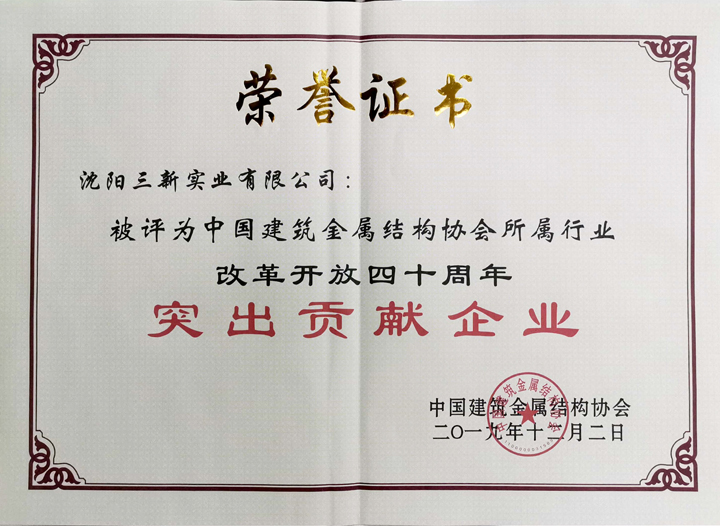 荣誉证书
沈阳三新实业有限公司：
被评为中国建筑金属结构协会所属行业
改革开放四十周年
突出贡献企业
中国建筑金属结构协会
二〇一九年十二月二日
中国建筑金属结构协会